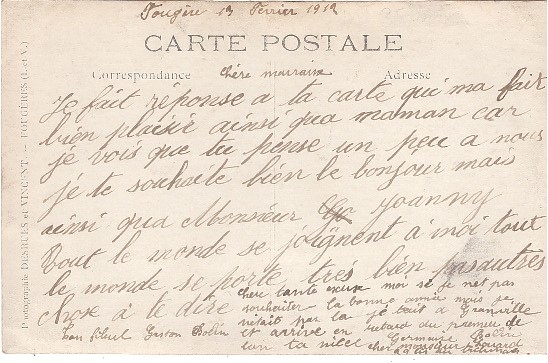 Fougère 13 Fevrier 1912
CARTE POSTALE
Correspondance
Adresse
chère marraine
Je fait réponse a ta carte qui ma fait
bien plaisir ainsi qua maman car
je vois que tu pense un peu a nous
je te souhaite bien le bonjour mais
ainsi qua Monsieur Joanny
Tout le monde se joignent à moi tout
le monde se porte très bien pas autres
chose à te dire
chère tante excuse moi si je net pas
souhaiter la bonne année mais je
netait pas la je tait a Granville
je arrive en retard du premier de
ton filleul Gaston Bobin
lon ta niece Germaine Bobin
chez monsieur
Photographie DESRUES et VINCENT — FOUGÈRES (I.-et-V.)